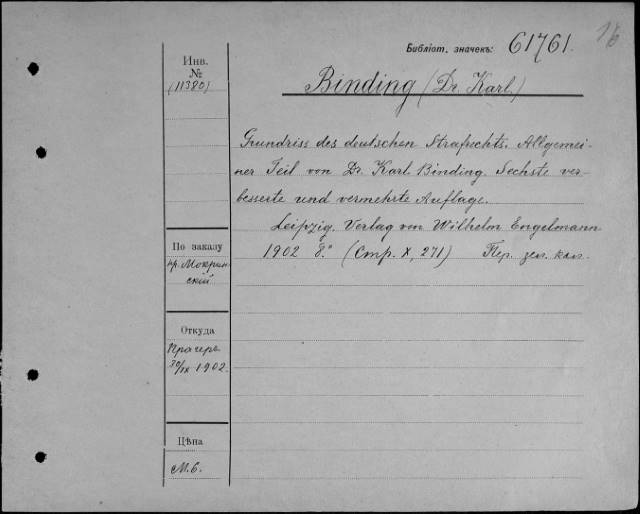 Библіот. значекъ: 61761.
16
Инв.
№
(11380)
Binding (Dr. Karl.)
Grundriss des deutschen Strafrechts. Allgemei-
ner Teil von Dr. Karl Binding. Sechste ver-
besserte und vermehrte Auflage.
Leipzig. Verlag von Wilhelm Engelmann
1902 8.° (Стр. X, 271) Пер. зел. кал.
По заказу
пр. Мокрин-
скій
Откуда
Прагеръ
30/IX 1902.
Цѣна
М. 6.